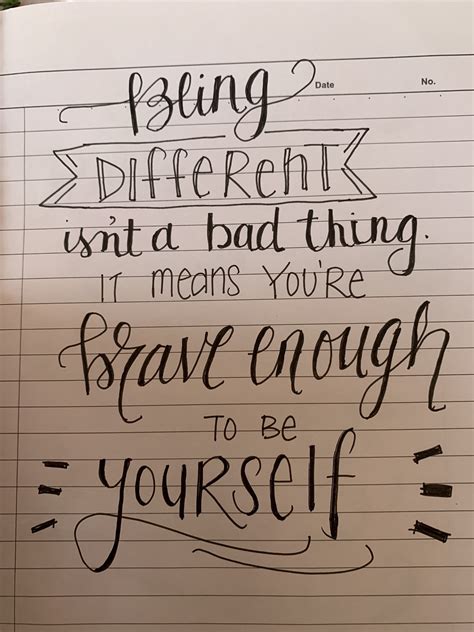 Being
Date
No.
DIFFERENT
isn't a bad thing.
IT means YOU'RE
brave enough
TO BE
YOURSELF